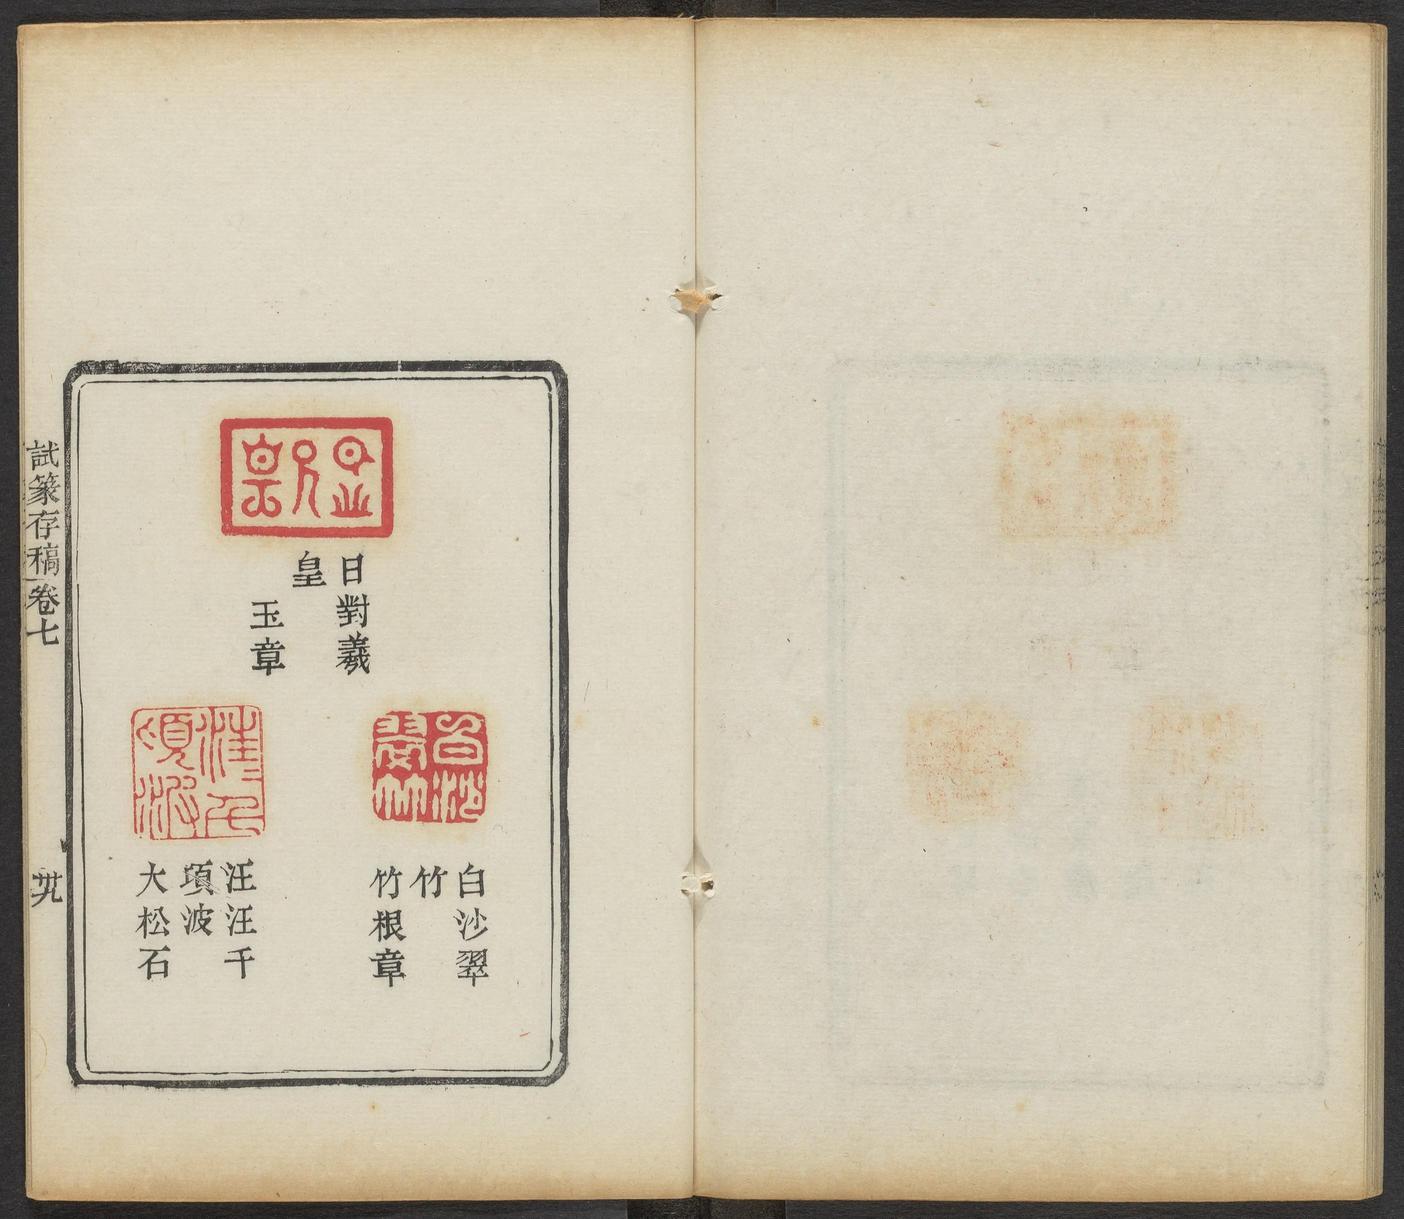 日對羲
皇
玉章
白沙翠
竹
竹根章
汪汪千
項波
大松石
試篆存稿卷七
廿九